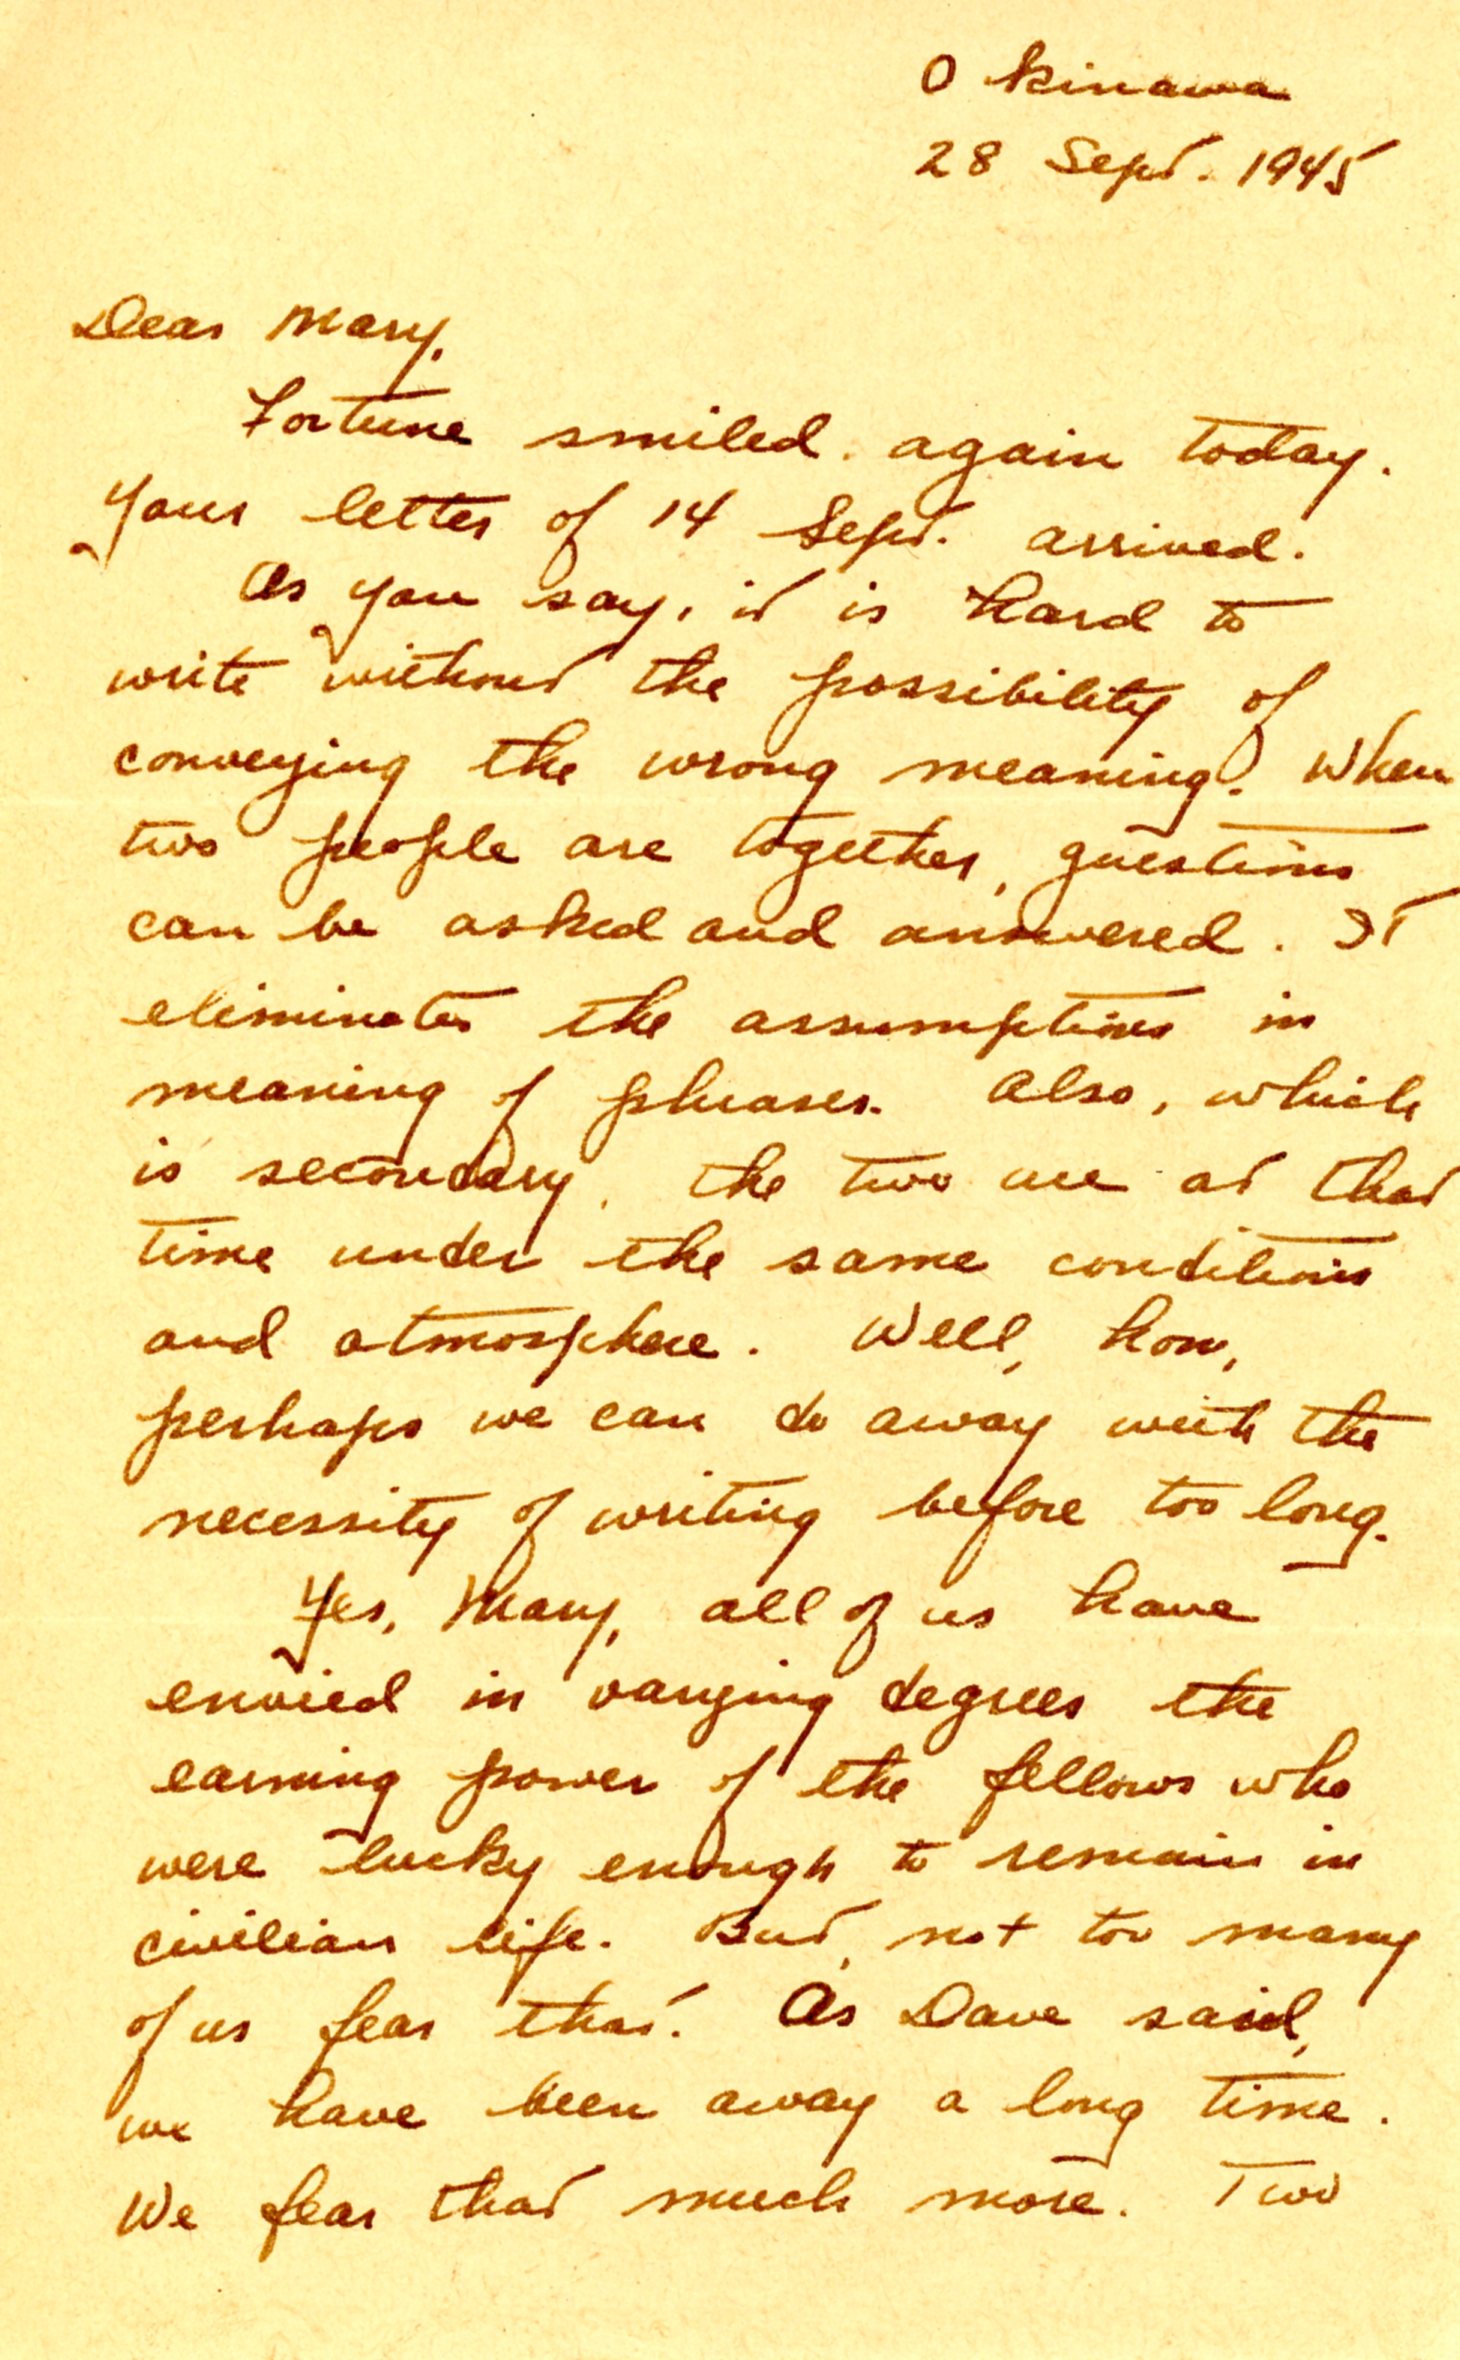 Okinawa
28 Sept. 1945
Dear Mary,
Fortune smiled again today.
Your letter of 14 Sept. arrived.
As you say, it is hard to
write without the possibility of
conveying the wrong meaning. When
two people are together, questions
can be asked and answered. It
eliminates the assumptions in
meaning of phrases. Also, which
is secondary, the two are at that
time under the same conditions
and atmosphere. Well, hon,
perhaps we can do away with the
necessity of writing before too long.
Yes, Mary, all of us have
envied in varying degrees the
earning power of the fellows who
were lucky enough to remain in
civilian life. But, not too many
of us fear that. As Dave said,
we have been away a long time.
We fear that much more. Two